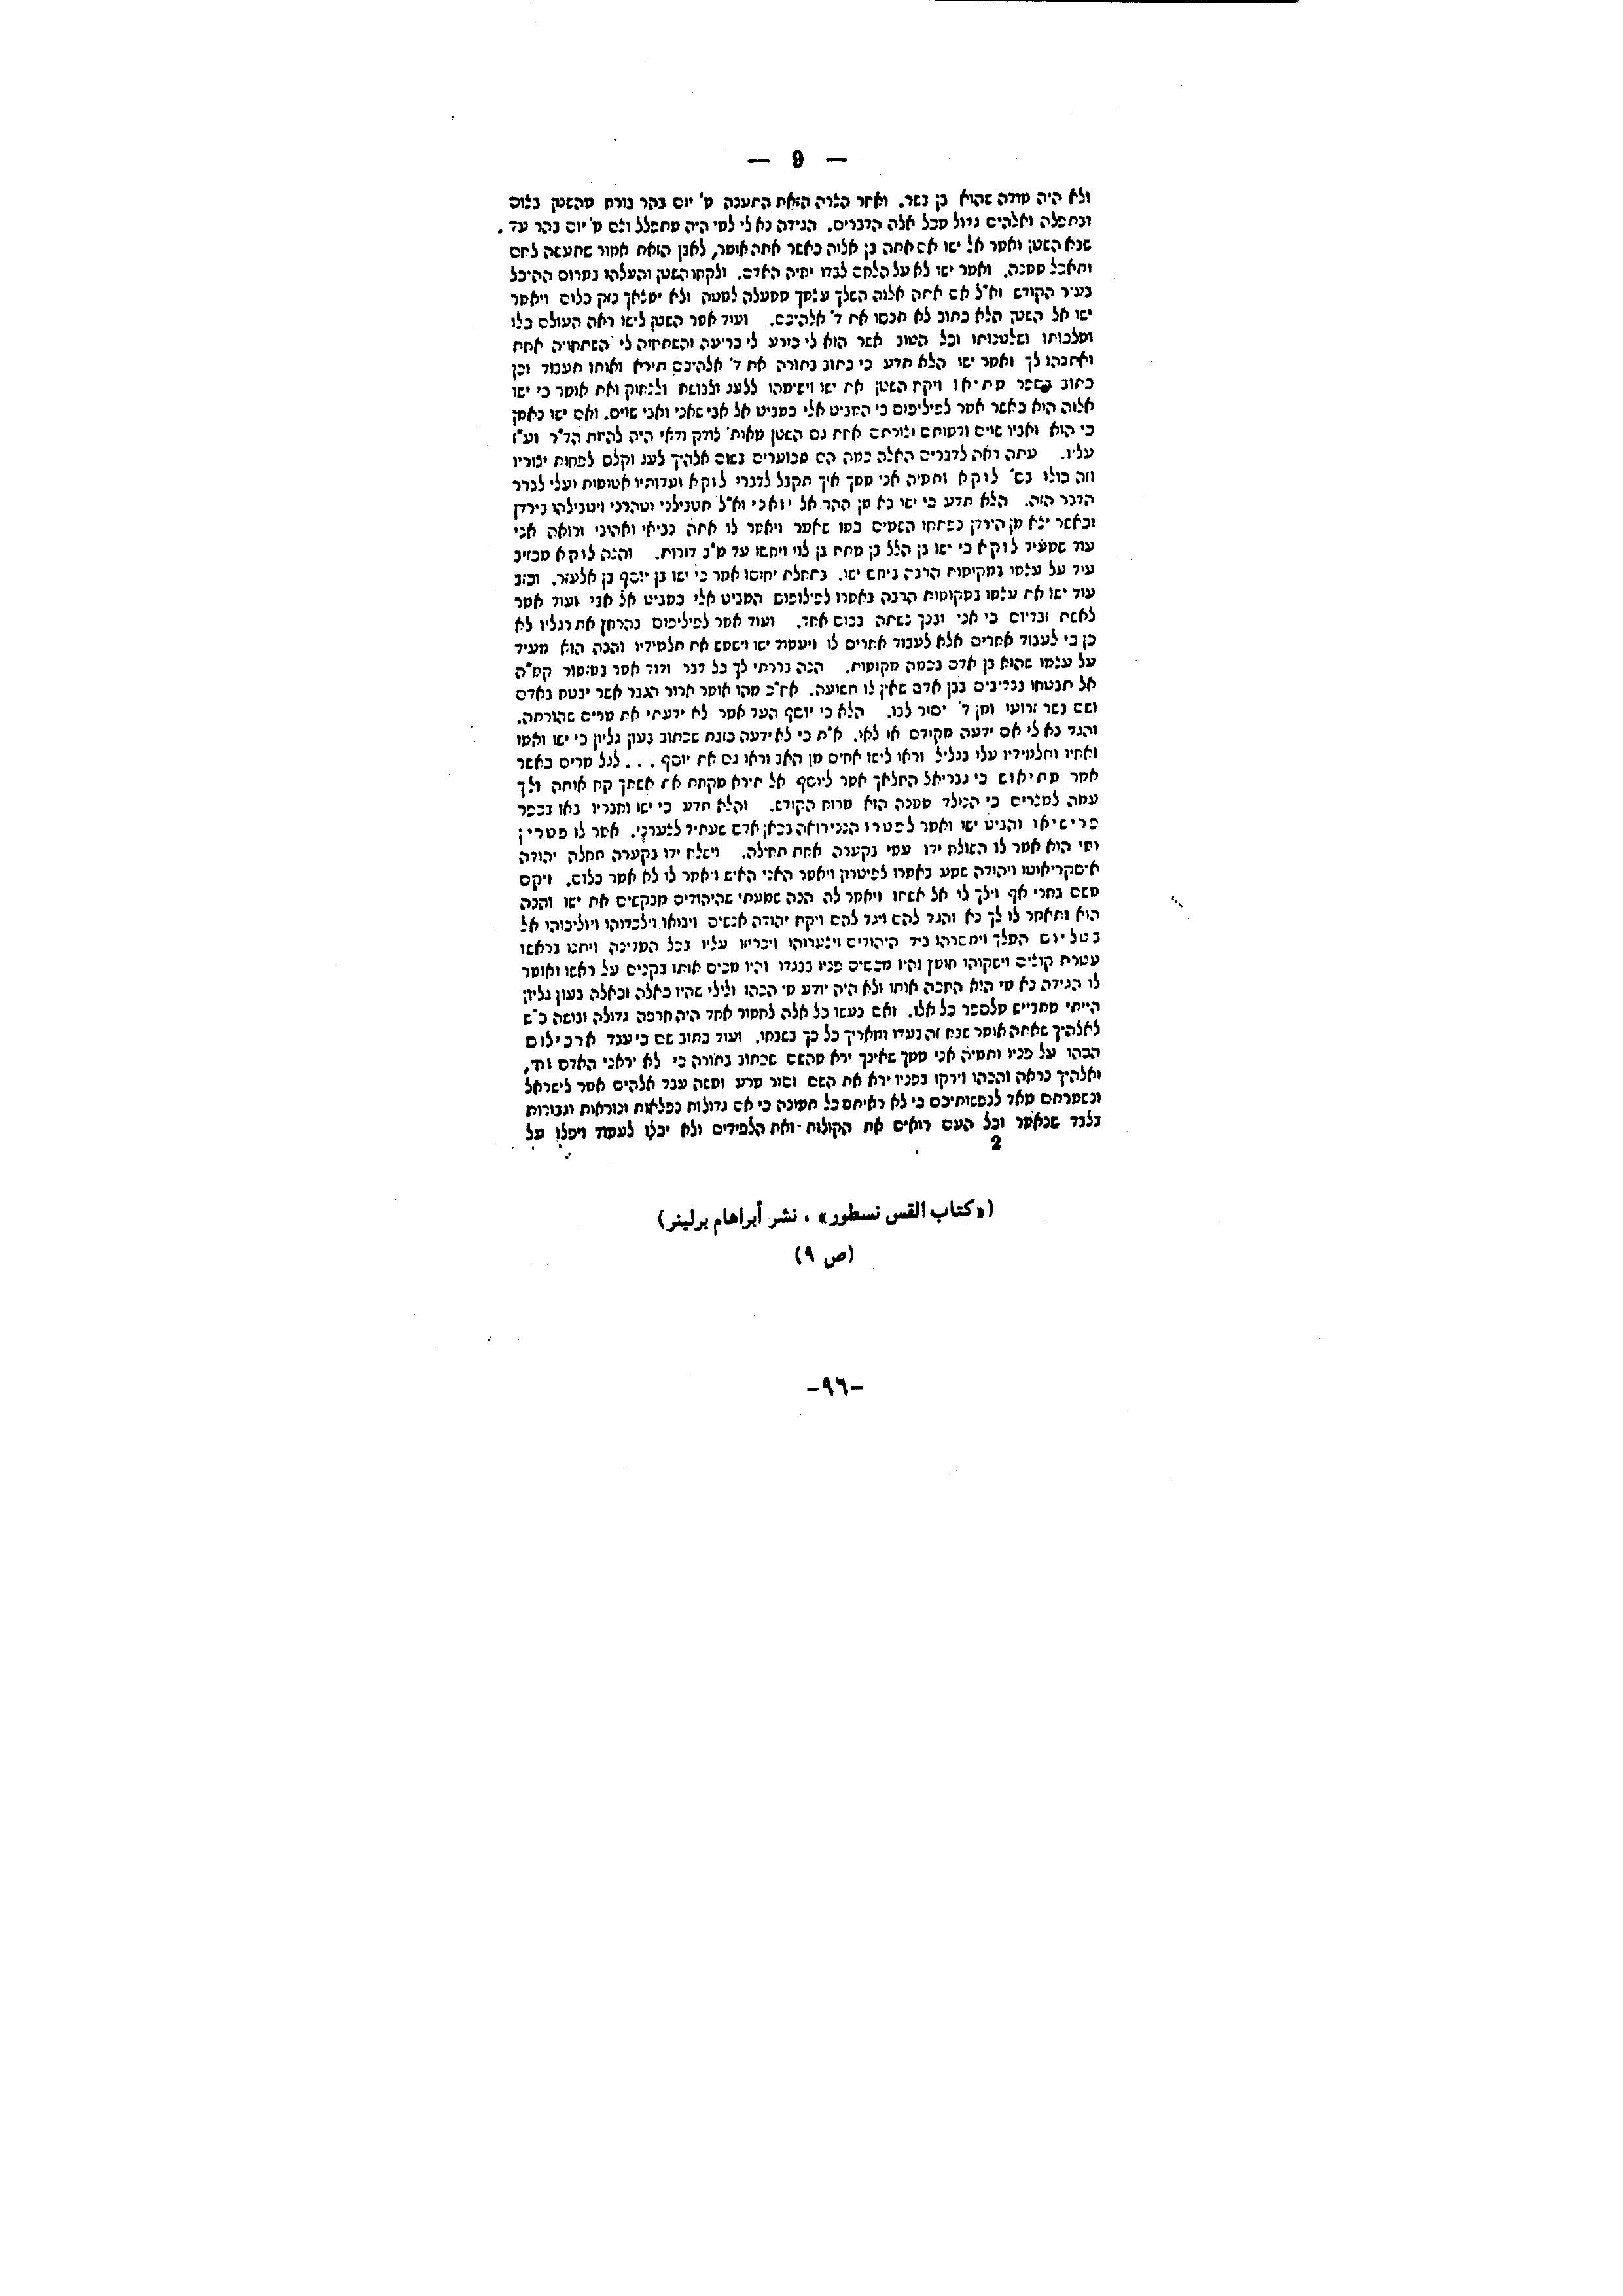 — 9 —
ולא היה מודה שהוא בן בשר. ואחר הצרה הזאת התענה מ' יום בהר בורח מהשטן בצום
ובתפלה ואלהים גדול מכל אלה הדברים. הגידה נא לי למי היה מתפלל וצם מ' יום בהר עד
שבא השטן ואמר אל ישו אם אתה בן אליה כאשר אתה אומר, לאבן הזאת אמור שתעשה לחם
ותאכל ממנה. ואמר ישו לא על הלחם לבדו יחיה האדם. ולקחו השטן והעלהו במרום ההיכל
בעיר הקודש וא"ל אם אתה אלוה השלך עצמך ממעלה למטה ולא ימצאך נזק כלום ויאמר
ישו אל השטן הלא כתוב לא תנסו את ד' אלהיכם. ועוד אמר השטן לישו ראה העולם כלו
ומלכותו ושלטנותו וכל הטוב אשר הוא לי כורע לי כריעה והשתחוה לי השתחויה אחת
ואתנהו לך ואמר ישו הלא תדע כי כתוב בתורה את ד' אלהיכם תירא ואותו תעבוד וכן
כתוב בספר מתיאו ויקח השטן את ישו וישימהו ללעג ולבושת ולצחוק ואת אומר כי ישו
אלוה הוא כאשר אמר לפיליפוס כי המביט אלי כמביט אל אבי שאני ואבי שוים. ואם ישו נאמן
כי הוא ואביו שוים ודמותם וצורתם אחת גם השטן מאות' צודק ודאי היה להיות הד"ר וע"ז
עליו. עתה ראה לדברים האלה כמה הם מכוערים בשום אלהיך לעג וקלס לפחות יצוריו
וזה כולו בס' לוקא ותמיה אני ממך איך תקבל לדברי לוקא ועדותיו אטומות ועלי לברר
הדבר הזה. הלא תדע כי ישו בא מן ההר אל יואני וא"ל תטבילני וטהרני ויטבילהו בירדן
וכאשר יצא מן הירדן נפתחו השמים כמו שאמר ויאמר לו אתה נביאי ואהובי ורואה אני
עוד שמעיד לוקא כי ישו בן הלל בן מתת בן לוי ויחשו עד מ"ב דורות. והנה לוקא מכזיב
עוד על עצמו במקומות הרבה ביחש ישו. בתחלת יחוסו אמר כי ישו בן יוסף בן אלעזר. וכזב
עוד ישו את עצמו במקומות הרבה באמרו לפילופוס המביט אלי כמביט אל אבי ועוד אמר
לאשת זבדיום כי אני ובנך נשתה בכוס אחד. ועוד אמר לפיליפוס בהרחץ את רגליו לא
כן כי לעבוד אחרים אלא לעבוד אחרים לו ויעמוד ישו וישמש את תלמידיו והנה הוא מעיד
על עצמו שהוא בן אדם בכמה מקומות. הנה בררתי לך כל דבר ודוד אמר במזמור קמ"ה
אל תבטחו בנדיבים בבן אדם שאין לו תשועה. אח"כ מהו אומר ארור הגבר אשר יבטח באדם
ושם בשר זרועו ומן ד' יסור לבו. הלא כי יוסף העד אמר לא ידעתי את מרים שהורתה.
והגד נא לי אם ידעה מקודם או לאו. א"ת כי לא ידעה כזבת שכתוב בעון גליון כי ישו ואמו
ואחיו ותלמידיו עלו בגליל וראו לישו אחים מן האב וראו גם את יוסף ... לגל מרים כאשר
אמר מתיאוש כי גבריאל המלאך אמר ליוסף אל תירא מקחת את אשתך קח אותה ולך
עמה למצרים כי הנולד ממנה הוא מרוח הקודש. והלא תדע כי ישו וחבריו באו בכפר
פרישיאו והביט ישו ואמר לפטרו הנני רואה בכאן אדם שעתיד לצערני. אמר לו פטרין
ומי הוא אמר לו השולח ידו עמי בקערה אחת תחילה. וישלח ידו בקערה תחלה יהודה
איסקריאוטו ויהודה שמע באמרו לפיטרון ויאמר האני האיש ויאמר לו לא אמר כלום. ויקם
משם בחרי אף וילך לו אל אשתו ויאמר לה הנה שמעתי שהיהודים מבקשים את ישו והנה
הוא ותאמר לו לך נא והגד להם ויגד להם ויקח יהודה אנשים ויבואו וילכדוהו ויוליכוהו אל
בטליום המלך וימסרהו ביד היהודים ויצערוהו ויכריזו עליו בכל המדינה ויתנו בראשו
עטרת קוצים וישקוהו חומץ והיו מכסים פניו בבגדו והיו מכים אותו בקנים על ראשו ואומר
לו הגידה נא מי הוא המכה אותו ולא היה יודע מי הכהו ולולי שהיו כאלה וכאלה בעון גליון
הייתי מתבייש מלספר כל אלו. ואם נעשו כל אלה לחמור אחד היה חרפה גדולה ובושה כ"ש
לאלהיך שאתה אומר שבח זה בעדו ומאריך כל כך בשבחו. ועוד כתוב שם כי עבד ארכילוס
הכהו על פניו ותמיה אני ממך שאינך ירא מהשם שכתוב בתורה כי לא יראני האדם וחי,
ואלהיך נראה והכהו וירקו בפניו ירא את השם וסור מרע ומשה עבד אלהים אמר לישראל
ונשמרתם מאד לנפשותיכם כי לא ראיתם כל תמונה כי אם גדולות נפלאות ונוראות וגבורות
בלבד שנאמר וכל העם רואים את הקולות ואת הלפידים ולא יכלו לעמוד ויפלו על
2
(«كتاب القس نسطور» ، نشر أبراهام برلينر)
(ص ٩)
–٩٦–